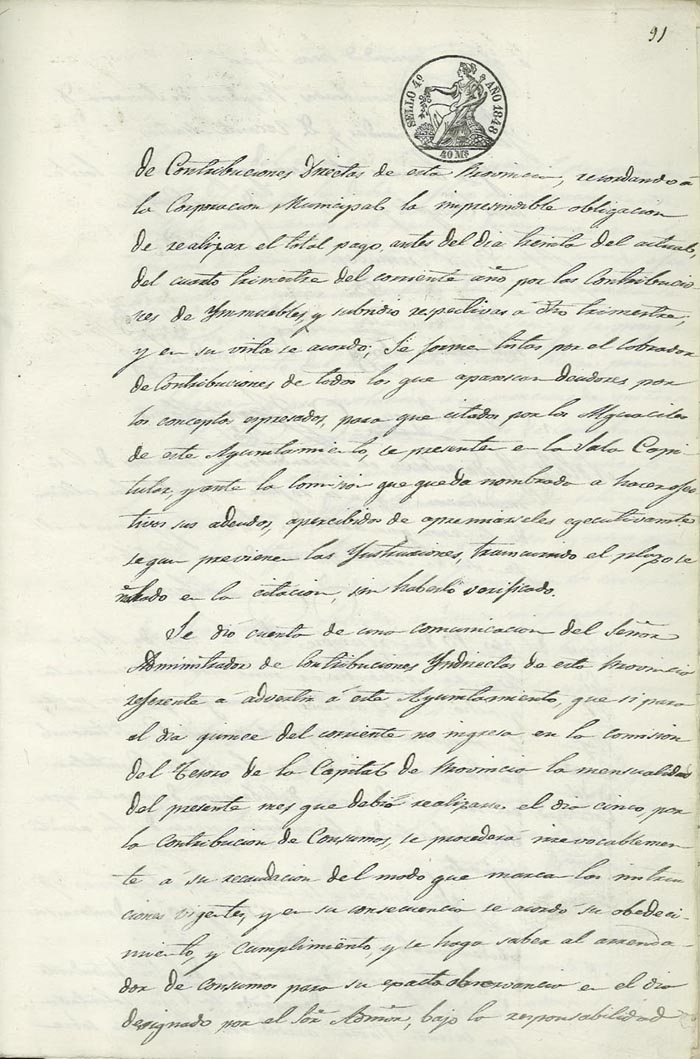 91
SELLO 4º AÑO 1848
40 Ms
de Contribuciones Directas de esta Provincia, recordando á
la Corporacion Municipal la imprescindible obligacion
de realizar el total pago, antes del dia treinta del actual,
del cuarto trimestre del corriente año, por las Contribucio
nes de Ynmuebles, y subsidio respectivas a dho trimestre;
y en su vista se acordó; Se formen listas por el Cobrador
de Contribuciones de todos los que aparescan deudores por
los conceptos espresados, para que citados por los Alguaciles
de este Ayuntamiento, se presenten en la Sala Capi-
tular, y ante la Comision que queda nombrada a hacer efec
tivos sus adeudos, apercibidos de apremiarseles egecutivamte
segun previenen las Ynstrucciones, trancurrido el plazo se
ñalado en la citacion, sin haberlo verificado.
Se dió cuenta de una comunicacion del Señor
Administrador de Contribuciones Yndirectas de esta Provincia
referente á advertir á este Ayuntamiento, que si para
el dia quince del corriente no ingresa en la comision
del Tesoro de la Capital de Provincia la mensualidad
del presente mes que debió realizarse el dia cinco, por
la Contribucion de Consumos, se procederá irrevocablemen-
te á su recaudacion del modo que marca las instruc
ciones vigentes, y en su consecuencia se acordó su obedeci-
miento, y cumplimiento, y se haga saber al arrenda-
dor de Consumos para su exacta observancia en el dia
designado por el Sor Admor, bajo la responsabilidad